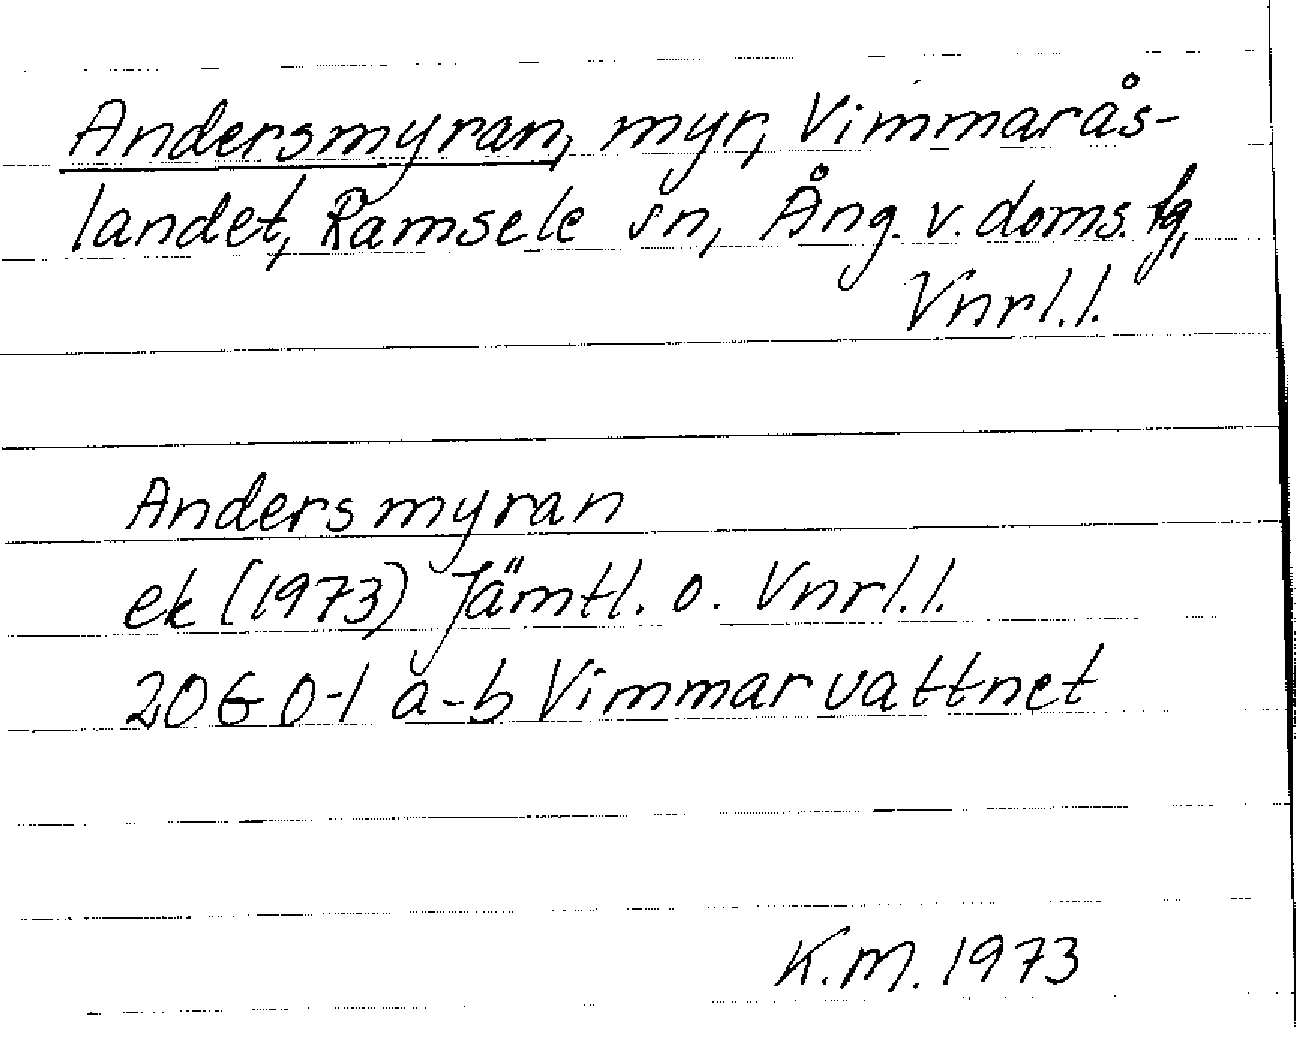 Andersmyran, myr, Vimmarås-
landet, Ramsele sn, Ång. v. doms. fg,
Vnrl.l.
Andersmyran
ek (1973) Jämtl. o. Vnrl.l.
20G 0-1 a-b Vimmarvattnet
K.M. 1973